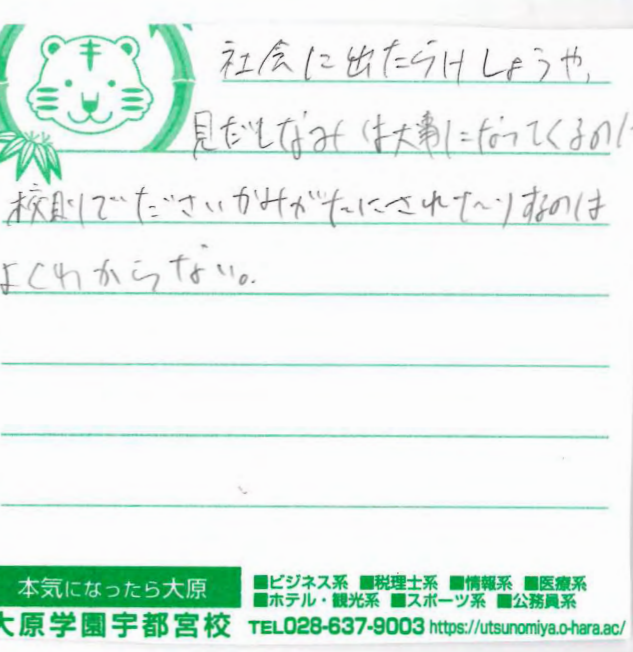 社会に出たらけしょうや、
見だしなみは大事になってくるのに
校則でださいかみがたにされたりするのは
よくわからない。
本気になったら大原
■ビジネス系 ■税理士系 ■情報系 ■医療系
■ホテル・観光系 ■スポーツ系 ■公務員系
大原学園宇都宮校 TEL028-637-9003 https://utsunomiya.o-hara.ac/